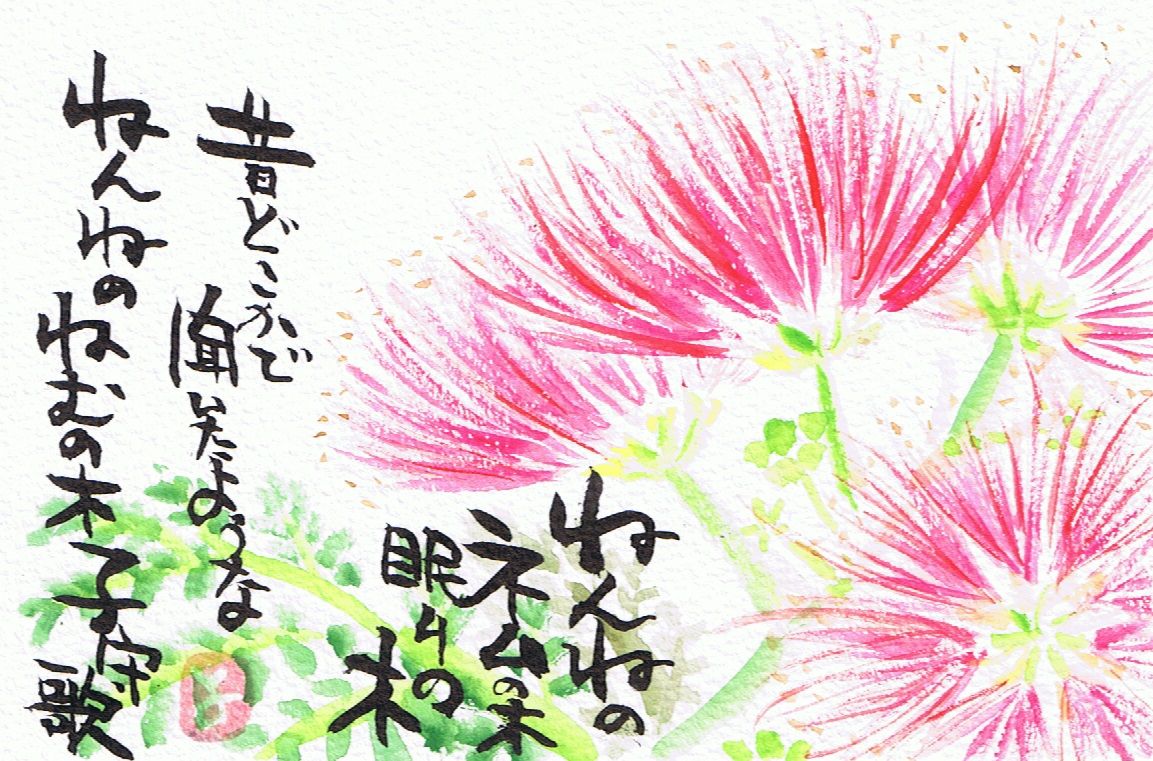 ねんねの
ネムの木
眠りの
木
昔どこかで
聞いたような
ねんねの
ねむの木
子守
歌